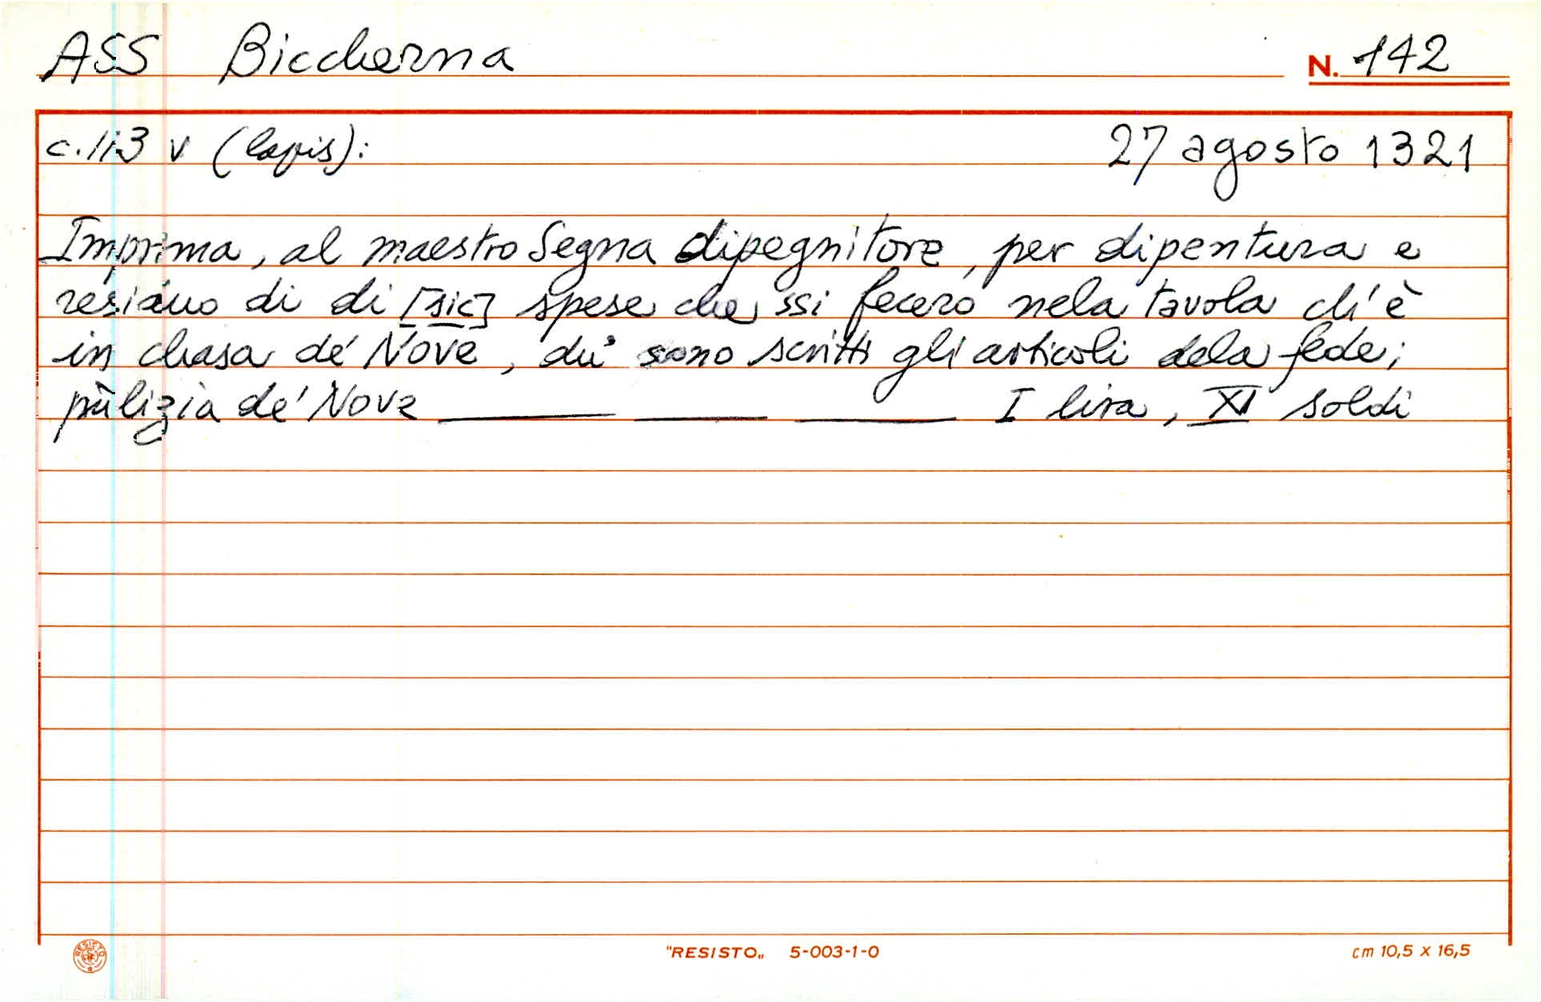 ASS Biccherna N. 142
c. 113 v (lapis): 27 agosto 1321
Imprima, al maestro Segna dipegnitore, per dipentura e
residuo di di [sic] spese che ssi fecero nela tavola ch'è
in chasa de' Nove, du' sono scritti gli articoli dela fede;
pulizia de' Nove I lira, XI soldi
RESISTO
"RESISTO„ 5-003-1-0 cm 10,5 x 16,5